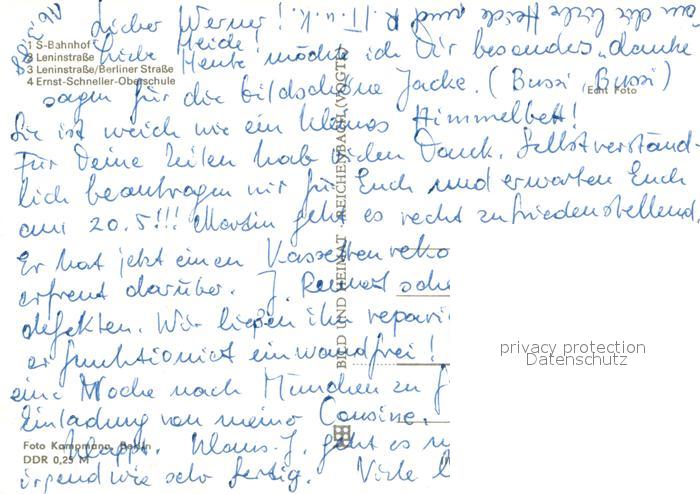 Lieber Werner!
1 S-Bahnhof
2 Leninstraße
3 Leninstraße/Berliner Straße
4 Ernst-Schneller-Oberschule
Liebe Heide!
Heute möchte ich Dir besonders „danke
sagen für die bildschöne Jacke. (Bussi, Bussi)
Echt Foto
Sie ist weich wie ein kleines Himmelbett!
Für Deine Zeilen hab vielen Dank. Selbstverständ-
lich beantragen wir für Euch und erwarten Euch
am 20.5!!! Martin geht es recht zufriedenstellend.
Er hat jetzt einen Kassettenreko
erfreut darüber. J.
defekten. Wir ließen ihn repari
er funktioniert einwandfrei!
eine Woche nach München zu
Einladung von meiner Cousine.
klappt. Klaus-J. geht es
irgendwie sehr fertig. Viele
Foto Kampmann, Berlin
DDR 0,25 M
BILD UND HEIMAT · REICHENBACH (VOGTL)
privacy protection
Datenschutz